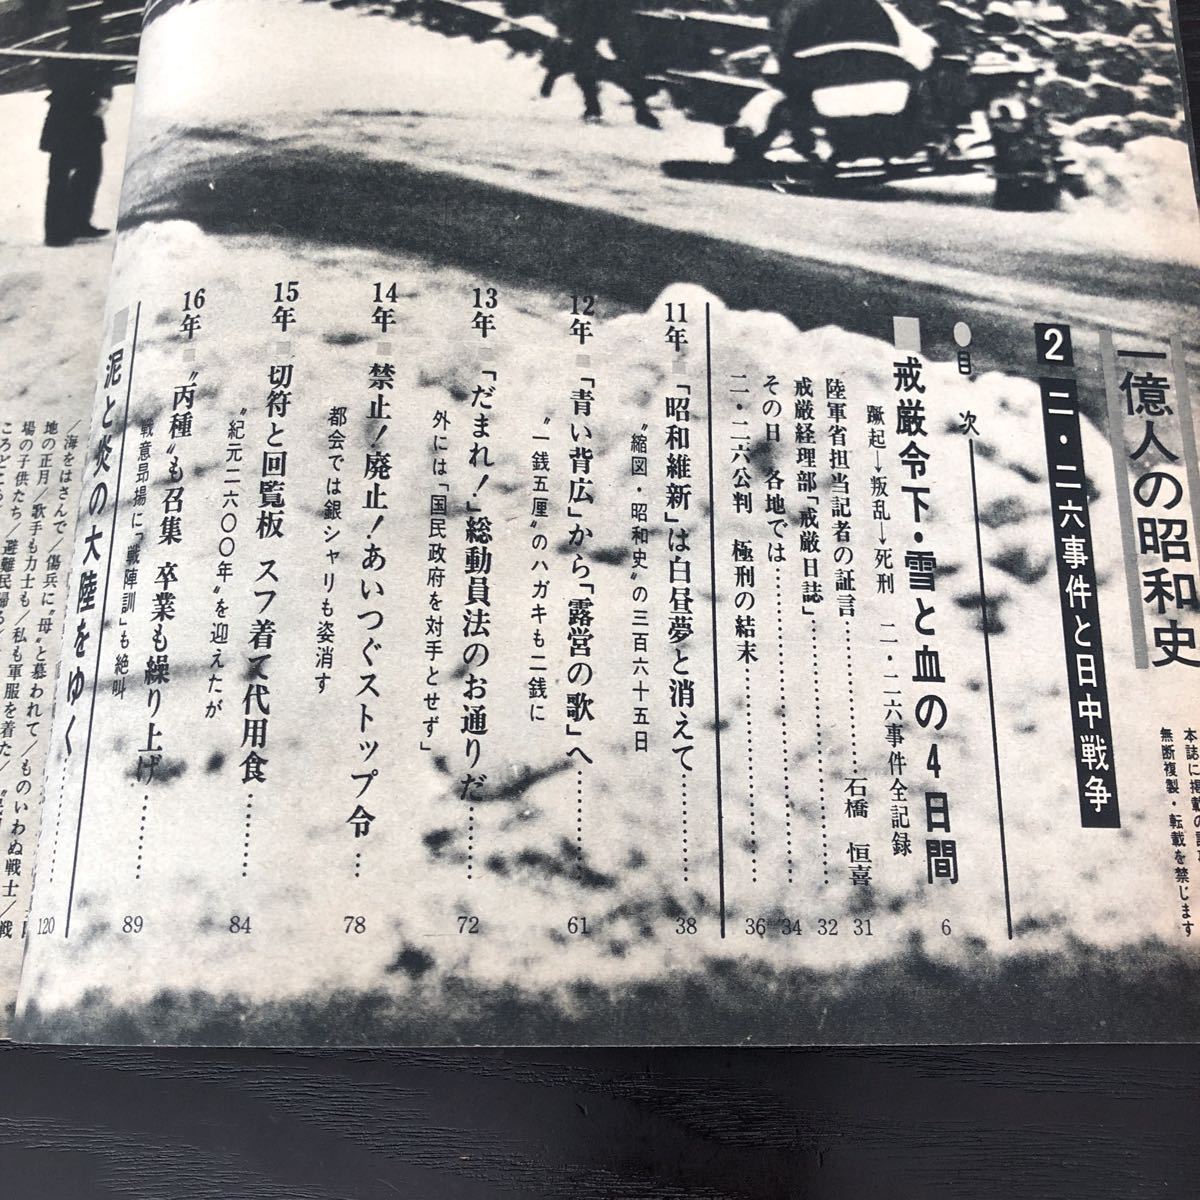 一億人の昭和史
本誌に掲載の
無断複製・転載を禁じます
2 二・二六事件と日中戦争
●目 次
■戒厳令下・雪と血の4日間 6
蹶起→叛乱→死刑 二・二六事件全記録
陸軍省担当記者の証言………石橋 恒喜 31
戒厳経理部「戒厳日誌」……… 32
その日 各地では……… 34
二・二六公判 極刑の結末……… 36
11年■「昭和維新」は白昼夢と消えて……… 38
〝縮図・昭和史〟の三百六十五日
12年■「青い背広」から「露営の歌」へ……… 61
〝一銭五厘〟のハガキも二銭に
13年■「だまれ!」総動員法のお通りだ……… 72
外には「国民政府を対手とせず」
14年■禁止!廃止!あいつぐストップ令… 78
都会では銀シャリも姿消す
15年■切符と回覧板 スフ着て代用食……… 84
〝紀元二六〇〇年〟を迎えたが
16年■〝丙種〟も召集 卒業も繰り上げ……… 89
戦意昂揚に「戦陣訓」も絶叫
■泥と炎の大陸をゆく……… 120
/海をはさんで/傷兵に〝母〟と慕われて/ものいわぬ戦士/戦
地の正月/歌手も力士も/私も軍服を着た/
場の子供たち/避難民帰る/
ころどころ/